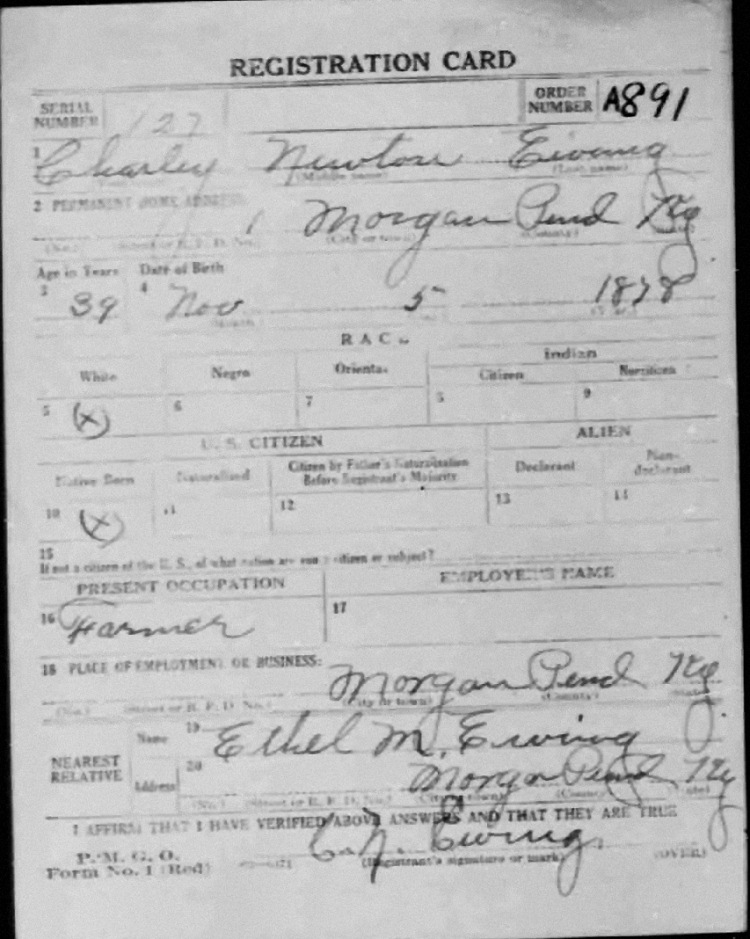 REGISTRATION CARD
SERIAL NUMBER 127 ORDER NUMBER A891
1 Charley Newton Ewing
(Middle name) (Last name)
2 PERMANENT HOME ADDRESS:
Morgan Pend Ky
(No.) (Street or R. F. D. No.) (City or town) (County)
Age in Years Date of Birth
3 39 4 Nov 5 1878
(Month) (Year)
RACE
White Negro Oriental Indian
Citizen Noncitizen
5 (X) 6 7 8 9
U. S. CITIZEN ALIEN
Native Born Naturalized Citizen by Father's Naturalization Before Registrant's Majority Declarant Non-declarant
10 (X) 11 12 13 14
15
If not a citizen of the U. S., of what nation are you a citizen or subject?
PRESENT OCCUPATION EMPLOYER'S NAME
16 Farmer 17
18 PLACE OF EMPLOYMENT OR BUSINESS:
Morgan Pend Ky
(No.) (Street or R. F. D. No.) (City or town) (County) (State)
NEAREST RELATIVE
Name 19 Ethel M. Ewing
Address 20 Morgan Pend Ky
(No.) (Street or R. F. D. No.) (City or town) (County) (State)
I AFFIRM THAT I HAVE VERIFIED ABOVE ANSWERS AND THAT THEY ARE TRUE
C. N. Ewing
P. M. G. O.
Form No. 1 (Red) (Registrant's signature or mark) (OVER)